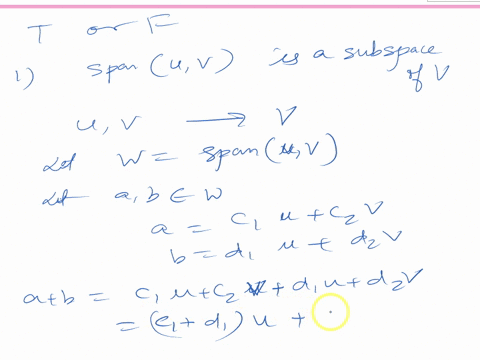 T or F
1) span (u, v) is a subspace
of V
u, v → V
Let W = span(u, v)
Let a, b ∈ W
a = c₁ u + c₂ v
b = d₁ u + d₂ v
a+b = c₁ u + c₂ v + d₁ u + d₂ v
= (c₁ + d₁) u +